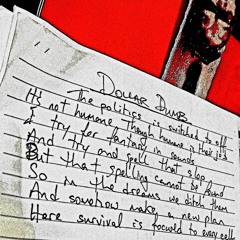 DOLLAR DUMB
The politics is switched to off
It's not humane though humane is their job
I try for fantasy in sounds
And try and spell that slop
But that spelling cannot be found
So in the dreams we ditch them
And somehow make a new plan
Here survival is focused to every cell